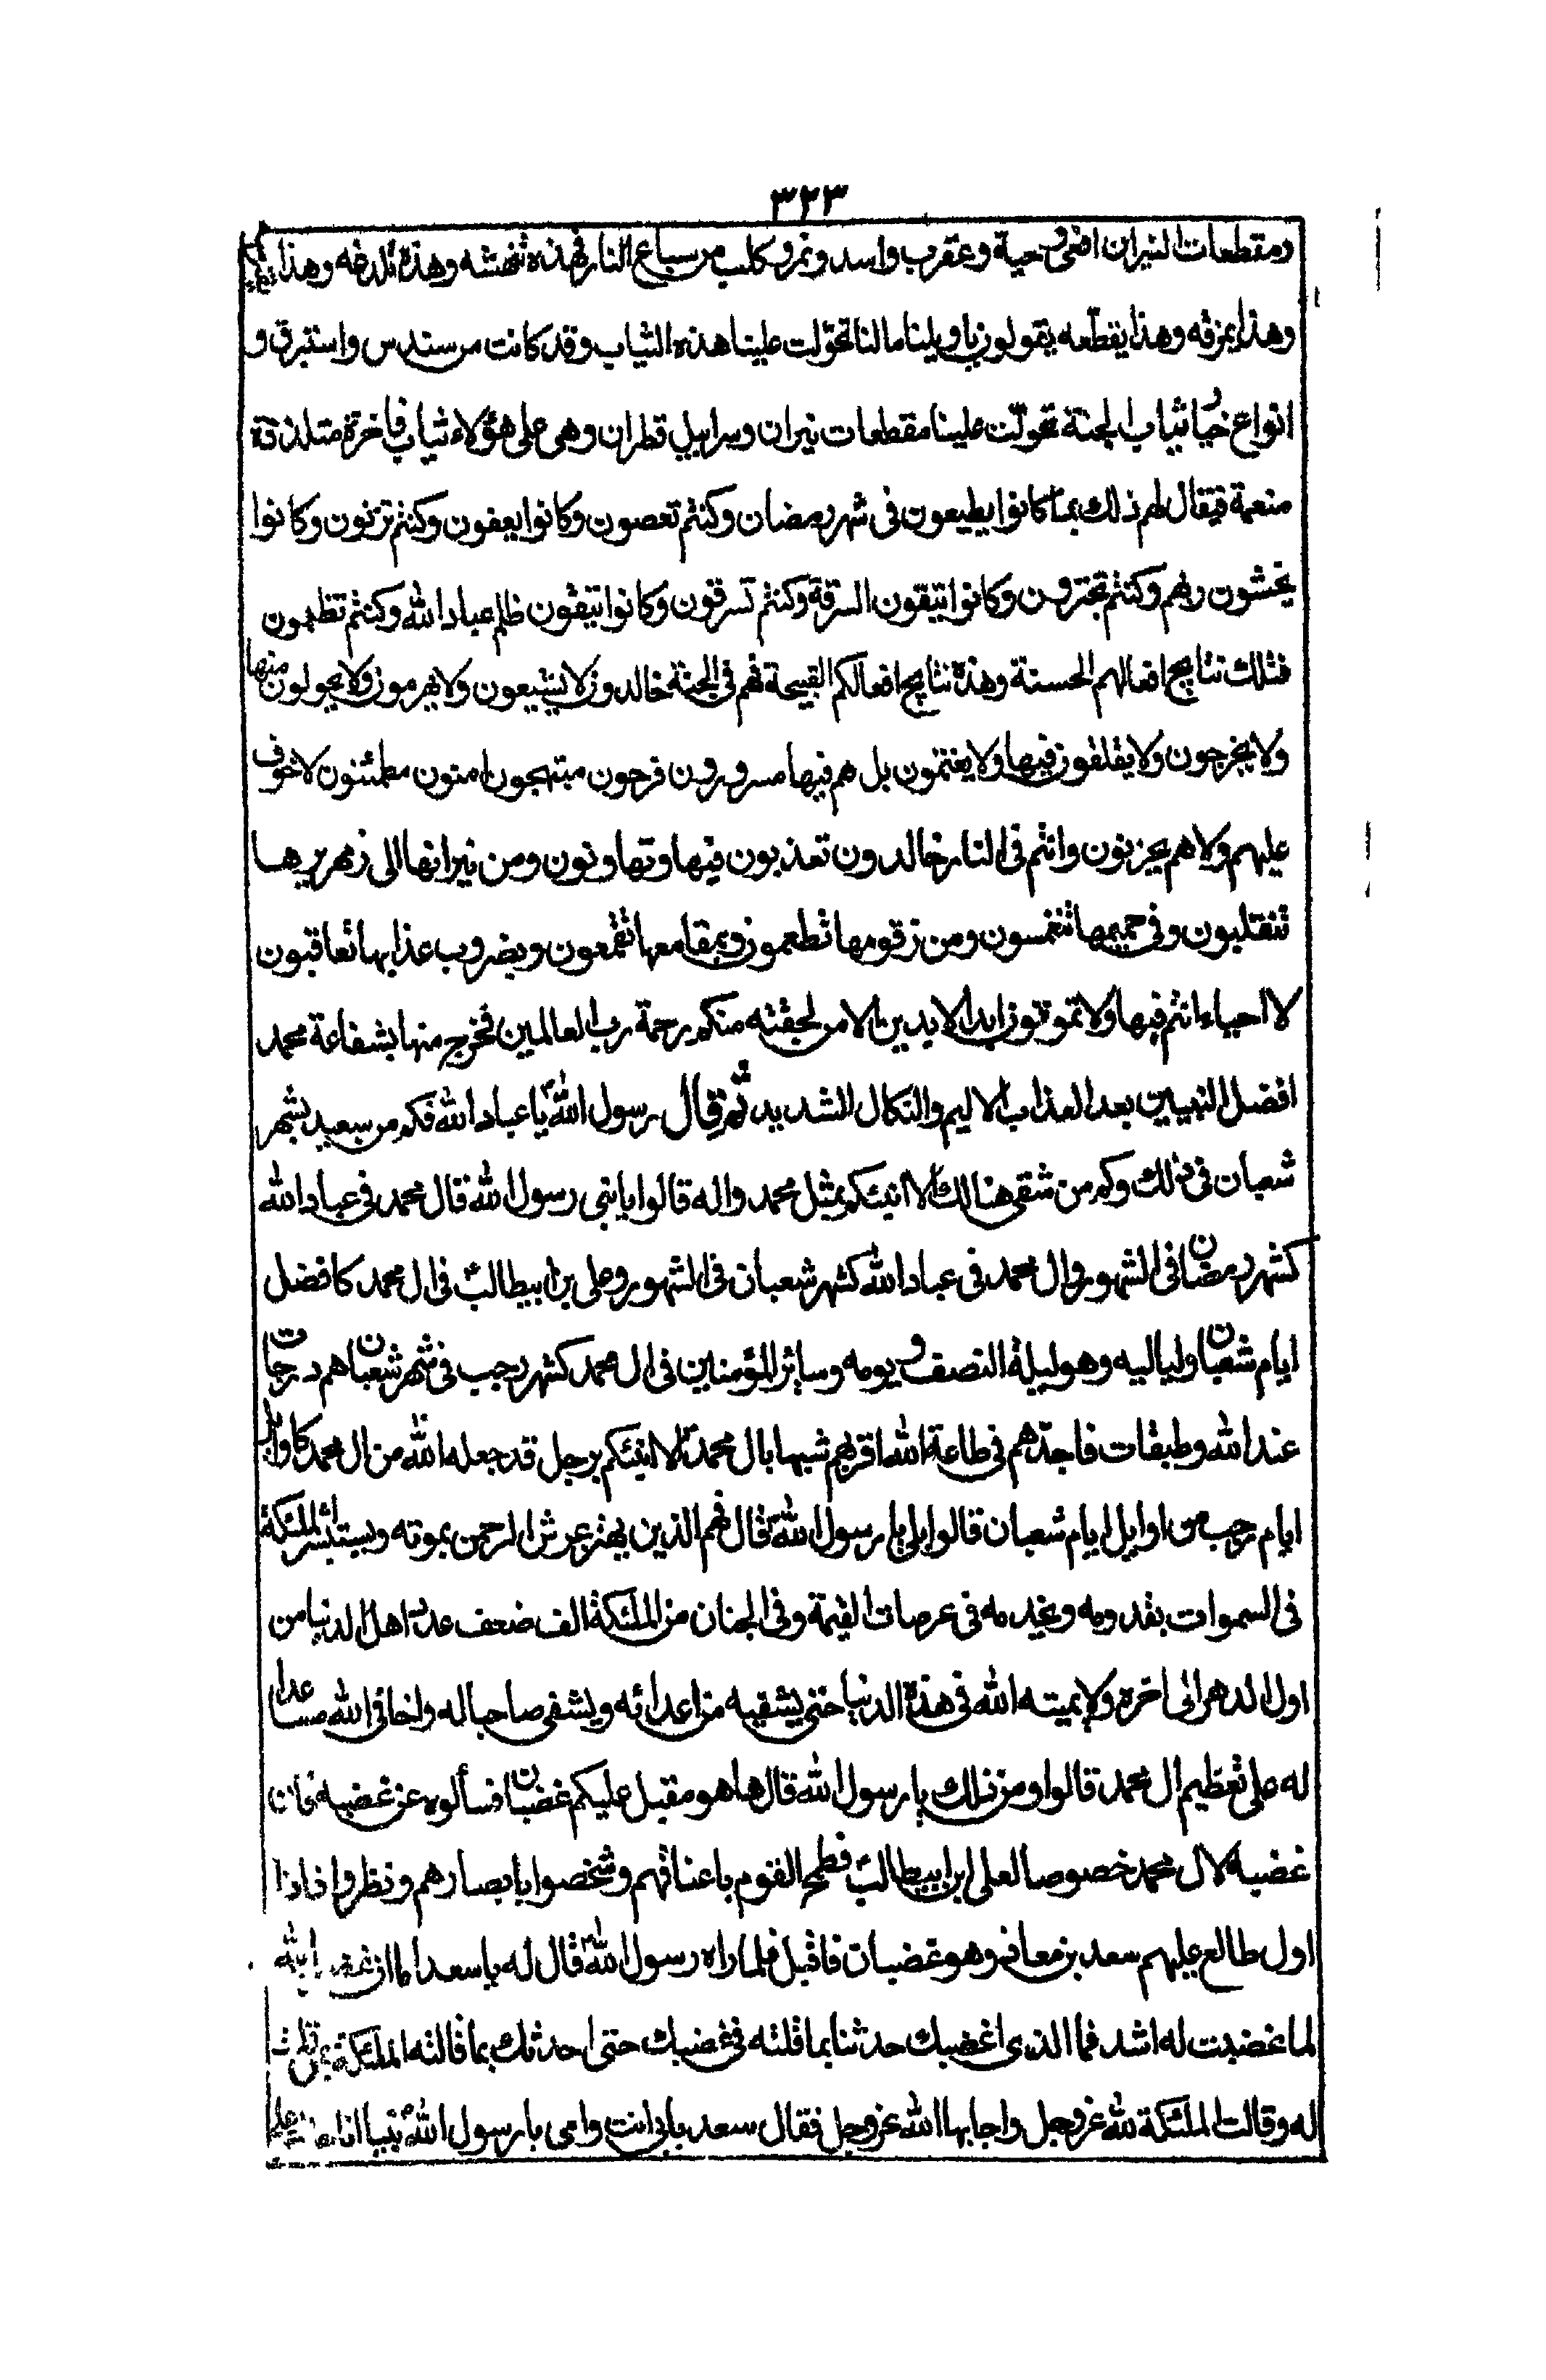 ٣٢٣
ومقطعات النيران افعى و حية وعقرب واسد ونمر و كلب من سباع النار فهذه تنهشه وهذه تلدغه وهذا
وهذا يمزقه وهذا يقطعه يقولون يا ويلنا مالنا تحولت علينا هذه الثياب وقد كانت من سندس واستبرق و
انواع خيار ثياب الجنة تحولت علينا مقطعات نيران وسرابيل قطران وهى على هؤلاء ثياب فاخرة متلذذة
منعمة فيقال لهم ذلك بما كانوا يطيعون فى شهر رمضان وكنتم تعصون وكانوا يعفون وكنتم تزنون وكانوا
يخشون ربهم وكنتم تجترون وكانوا يتقون السرقة وكنتم تسرقون وكانوا يتقون ظلم عباد الله وكنتم تظلمون
فتلك نتايج افعالهم الحسنة وهذه نتايج افعالكم القبيحة فهم فى الجنة خالدون لا يشيبون ولا يهرمون ولا يحولون منها
ولا يخرجون ولا يقلقون فيها ولا يغتمون بل هم فيها مسرورون فرحون مبتهجون امنون مطمئنون لا خوف
عليهم ولا هم يحزنون وانتم فى النار خالدون تعذبون فيها وتهانون ومن نيرانها الى زمهريرها
تنقلبون وفى حميمها تنغمسون ومن زقومها تطعمون وبمقامعها تقمعون وبضروب عذابها تعاقبون
لا احياء انتم فيها ولا تموتون ابد الابدين الا من لحقته منكم رحمة رب العالمين فخرج منها بشفاعة محمد
افضل النبيين بعد العذاب الاليم والنكال الشديد ثم قال رسول الله يا عباد الله فكم من سعيد بشهر
شعبان فى ذلك وكم من شقى هنالك الا انبئكم بمثل محمد واله قالوا بلى يا رسول الله قال محمد فى عباد الله
كشهر رمضان فى الشهور وال محمد فى عباد الله كشهر شعبان فى الشهور وعلى بن ابيطالب فى ال محمد كافضل
ايام شعبان ولياليه وهو ليلة النصف و يومه وسائر المؤمنين فى ال محمد كشهر رجب فى شهر شعبان هم درجات
عند الله وطبقات فاجدهم فى طاعة الله اقربهم شبها بال محمد الا انبئكم برجل قد جعله الله من ال محمد كاوايل
ايام رجب من اوايل ايام شعبان قالوا بلى يا رسول الله قال فهم الذين يهتز عرش الرحمن بموته ويستبشر الملئكة
فى السموات بقدومه ويخدمه فى عرصات القيمة وفى الجنان من الملئكة الف ضعف عدد اهل الدنيا من
اول الدهر الى اخره ولا يميته الله فى هذه الدنيا حتى يشفيه من اعدائه ويشفى صاحبا له واخا فى الله مساعدا
له على تعظيم ال محمد قالوا ومن ذلك يا رسول الله قال ها هو مقبل عليكم غضبان فسألوه عن غضبه فان
غضبه لال محمد خصوصا لعلى ابن ابيطالب فطمح القوم باعناقهم وشخصوا بابصارهم ونظروا فاذا
اول طالع عليهم سعد بن معاذ وهو غضبان فاقبل فلما راه رسول الله قال له يا سعد اما ان غضب الله
لما غضبت له اشد فما الذى اغضبك حدثنا بما قلته فى غضبك حتى احدثك بما قالته الملئكة
له وقالت الملئكة لله عز وجل واجابها الله عز وجل فقال سعد بابى انت وامى يا رسول الله بينا انا